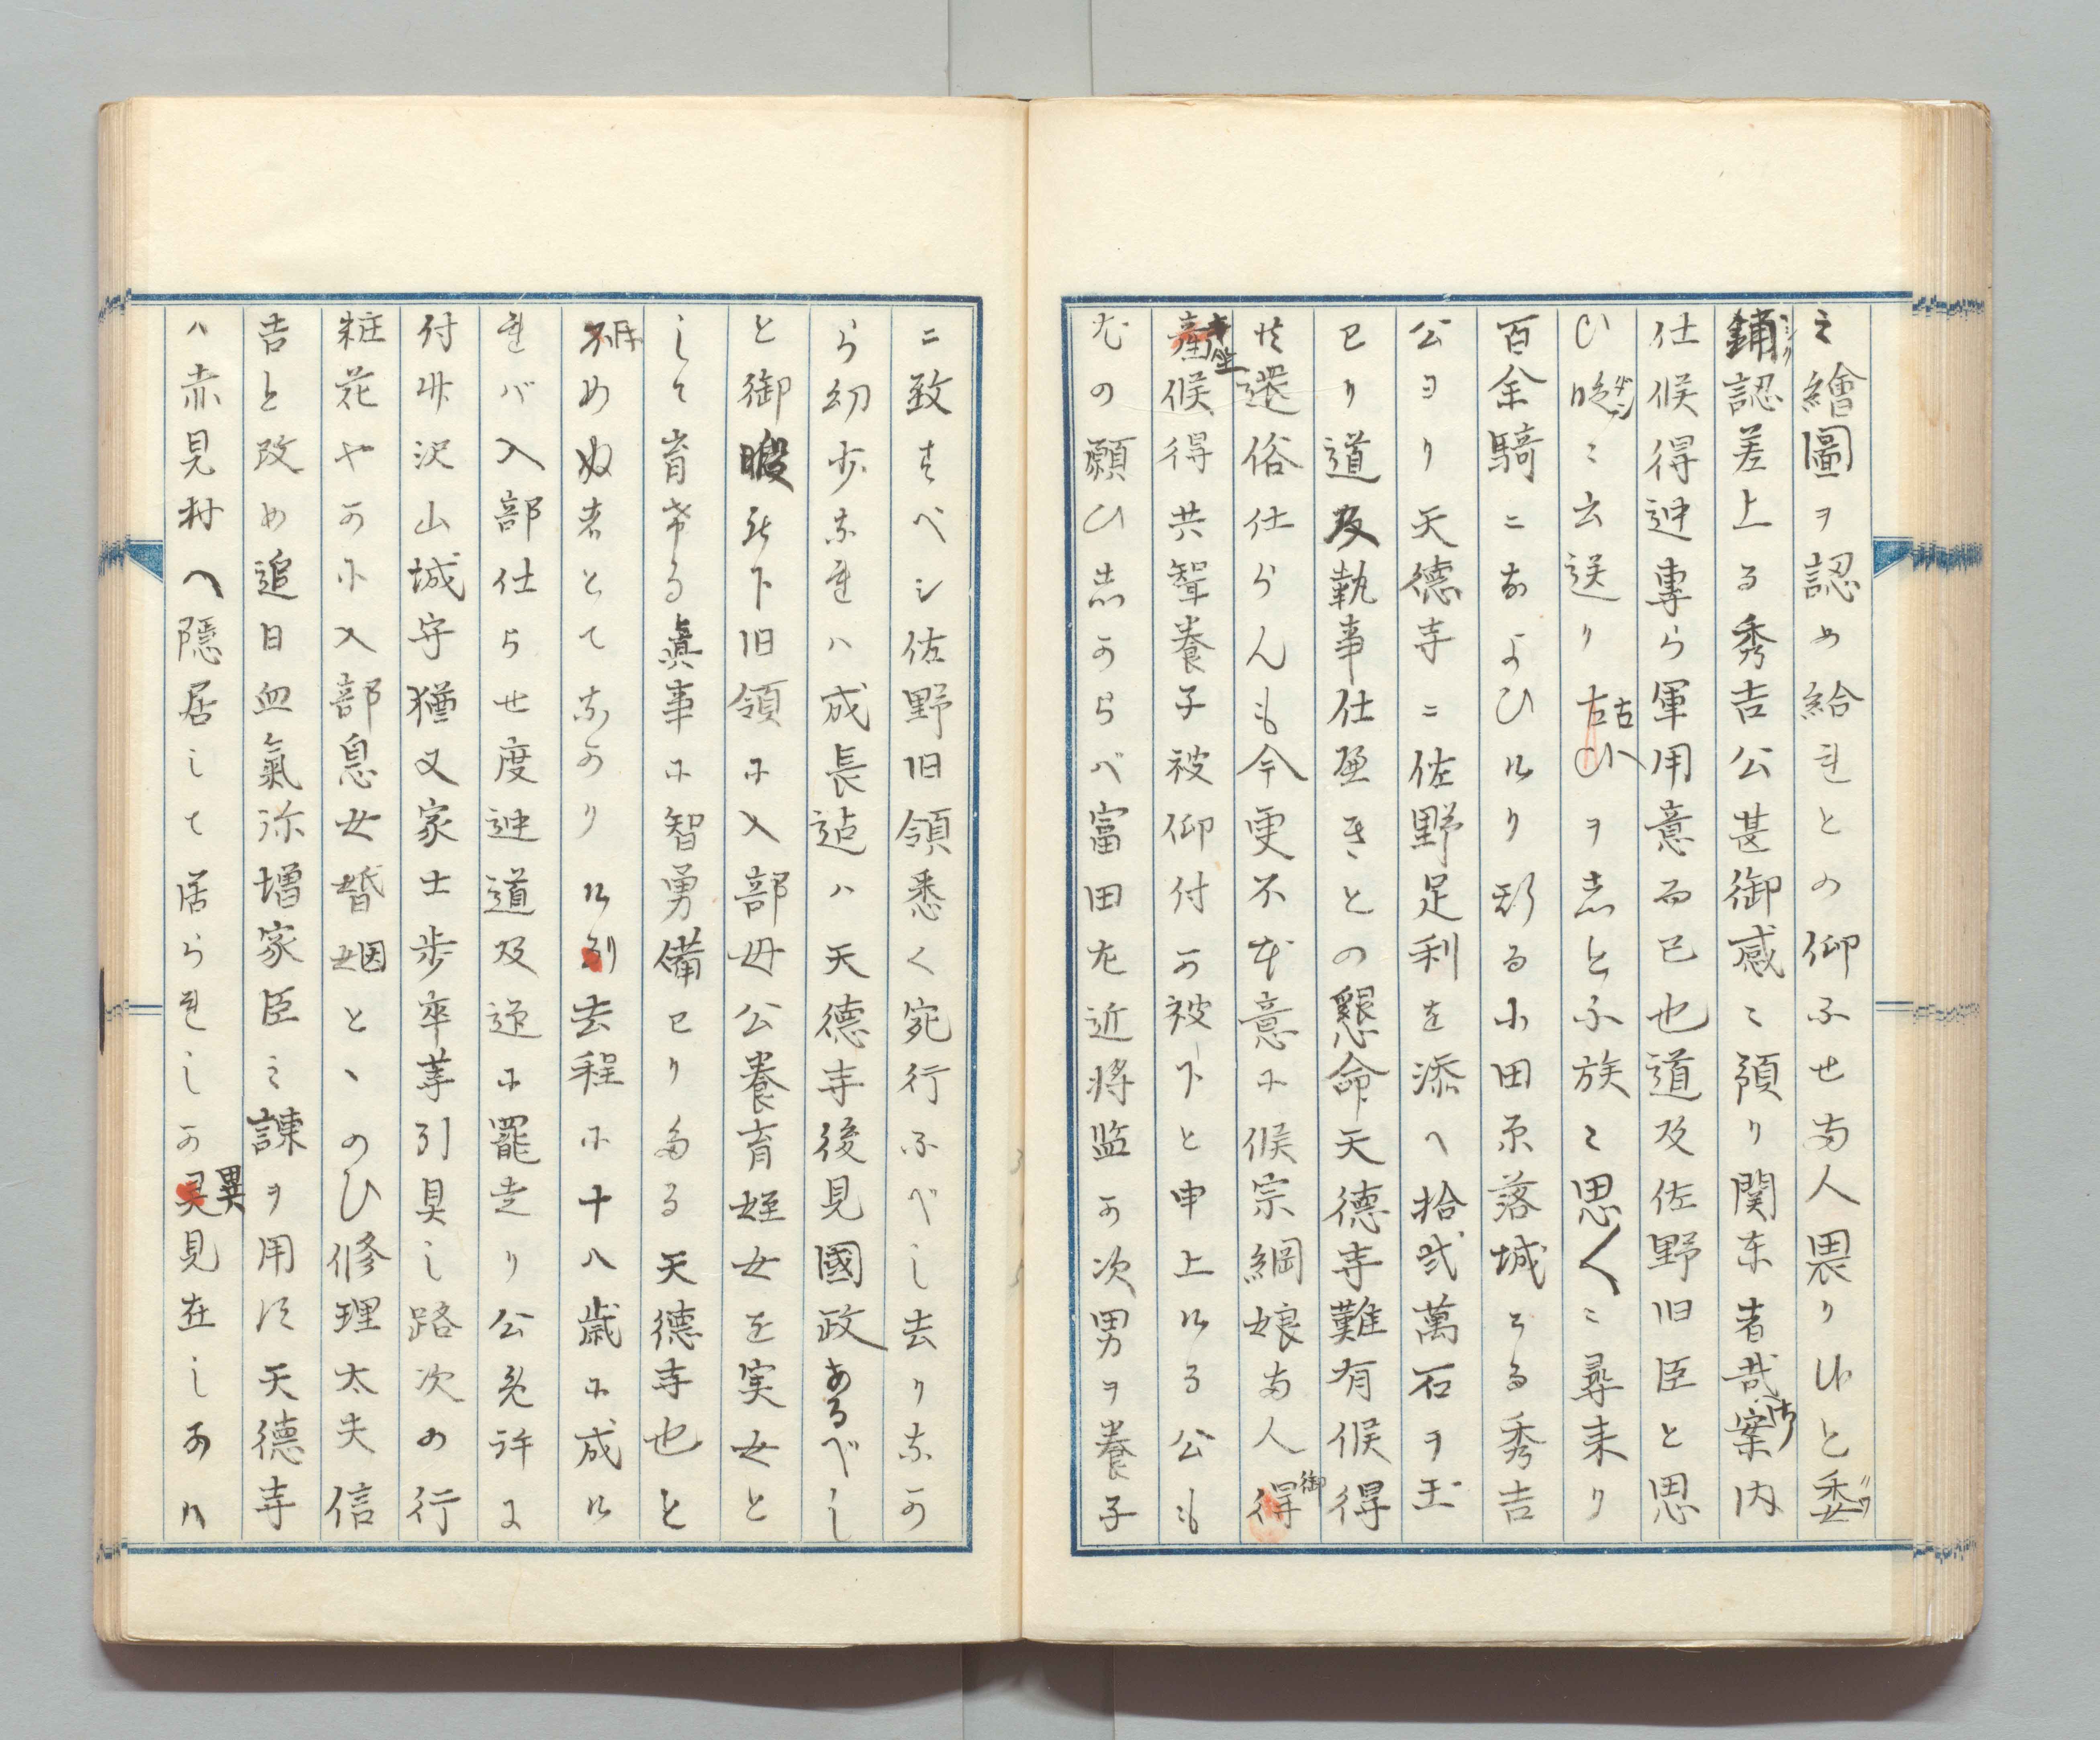 之繪圖ヲ認め給れとの仰ふせ両人畏り候と委
鋪認差上る秀吉公甚御感ニ預り関东者哉案内
仕候得迚專ら軍用意而已也道及佐野旧臣と思
ひ晩ニ云送り古ひヲ志とふ族ニ思くニ尋来り
百余騎ニおよひけり斯る小田原落城する秀吉
公ヨり天德寺ニ佐野足利を添へ拾弐萬石ヲ玉
已り道及執事仕べきとの懇命天德寺難有候得
共還俗仕らんも今更不本意に候宗綱娘両人御
座候得共聟養子被仰付可被下と申上ける公も
尤の願ひ志からバ富田左近將监可次男ヲ養子
ニ致すベシ佐野旧領悉く宛行ふべし去りなか
ら幼少なれハ成長迠ハ天德寺後見國政あるべし
と御暇被下旧領に入部母公養育姪女を実女と
して育みける眞事に智勇備わりたる天德寺也と
誉めぬ者とてなかりけり去程に十八歳に成け
れバ入部仕らせ度迚道及迎に罷走り公免許に
付廾沢山城守猶又家士歩卒䒭引具し路次の行
粧花やかに入部息女婚姻とゝのひ修理太夫信
吉と改め追日血氣弥增家臣之諫ヲ用ず天德寺
ハ赤見村へ隠居して居られしか異見在しかハ